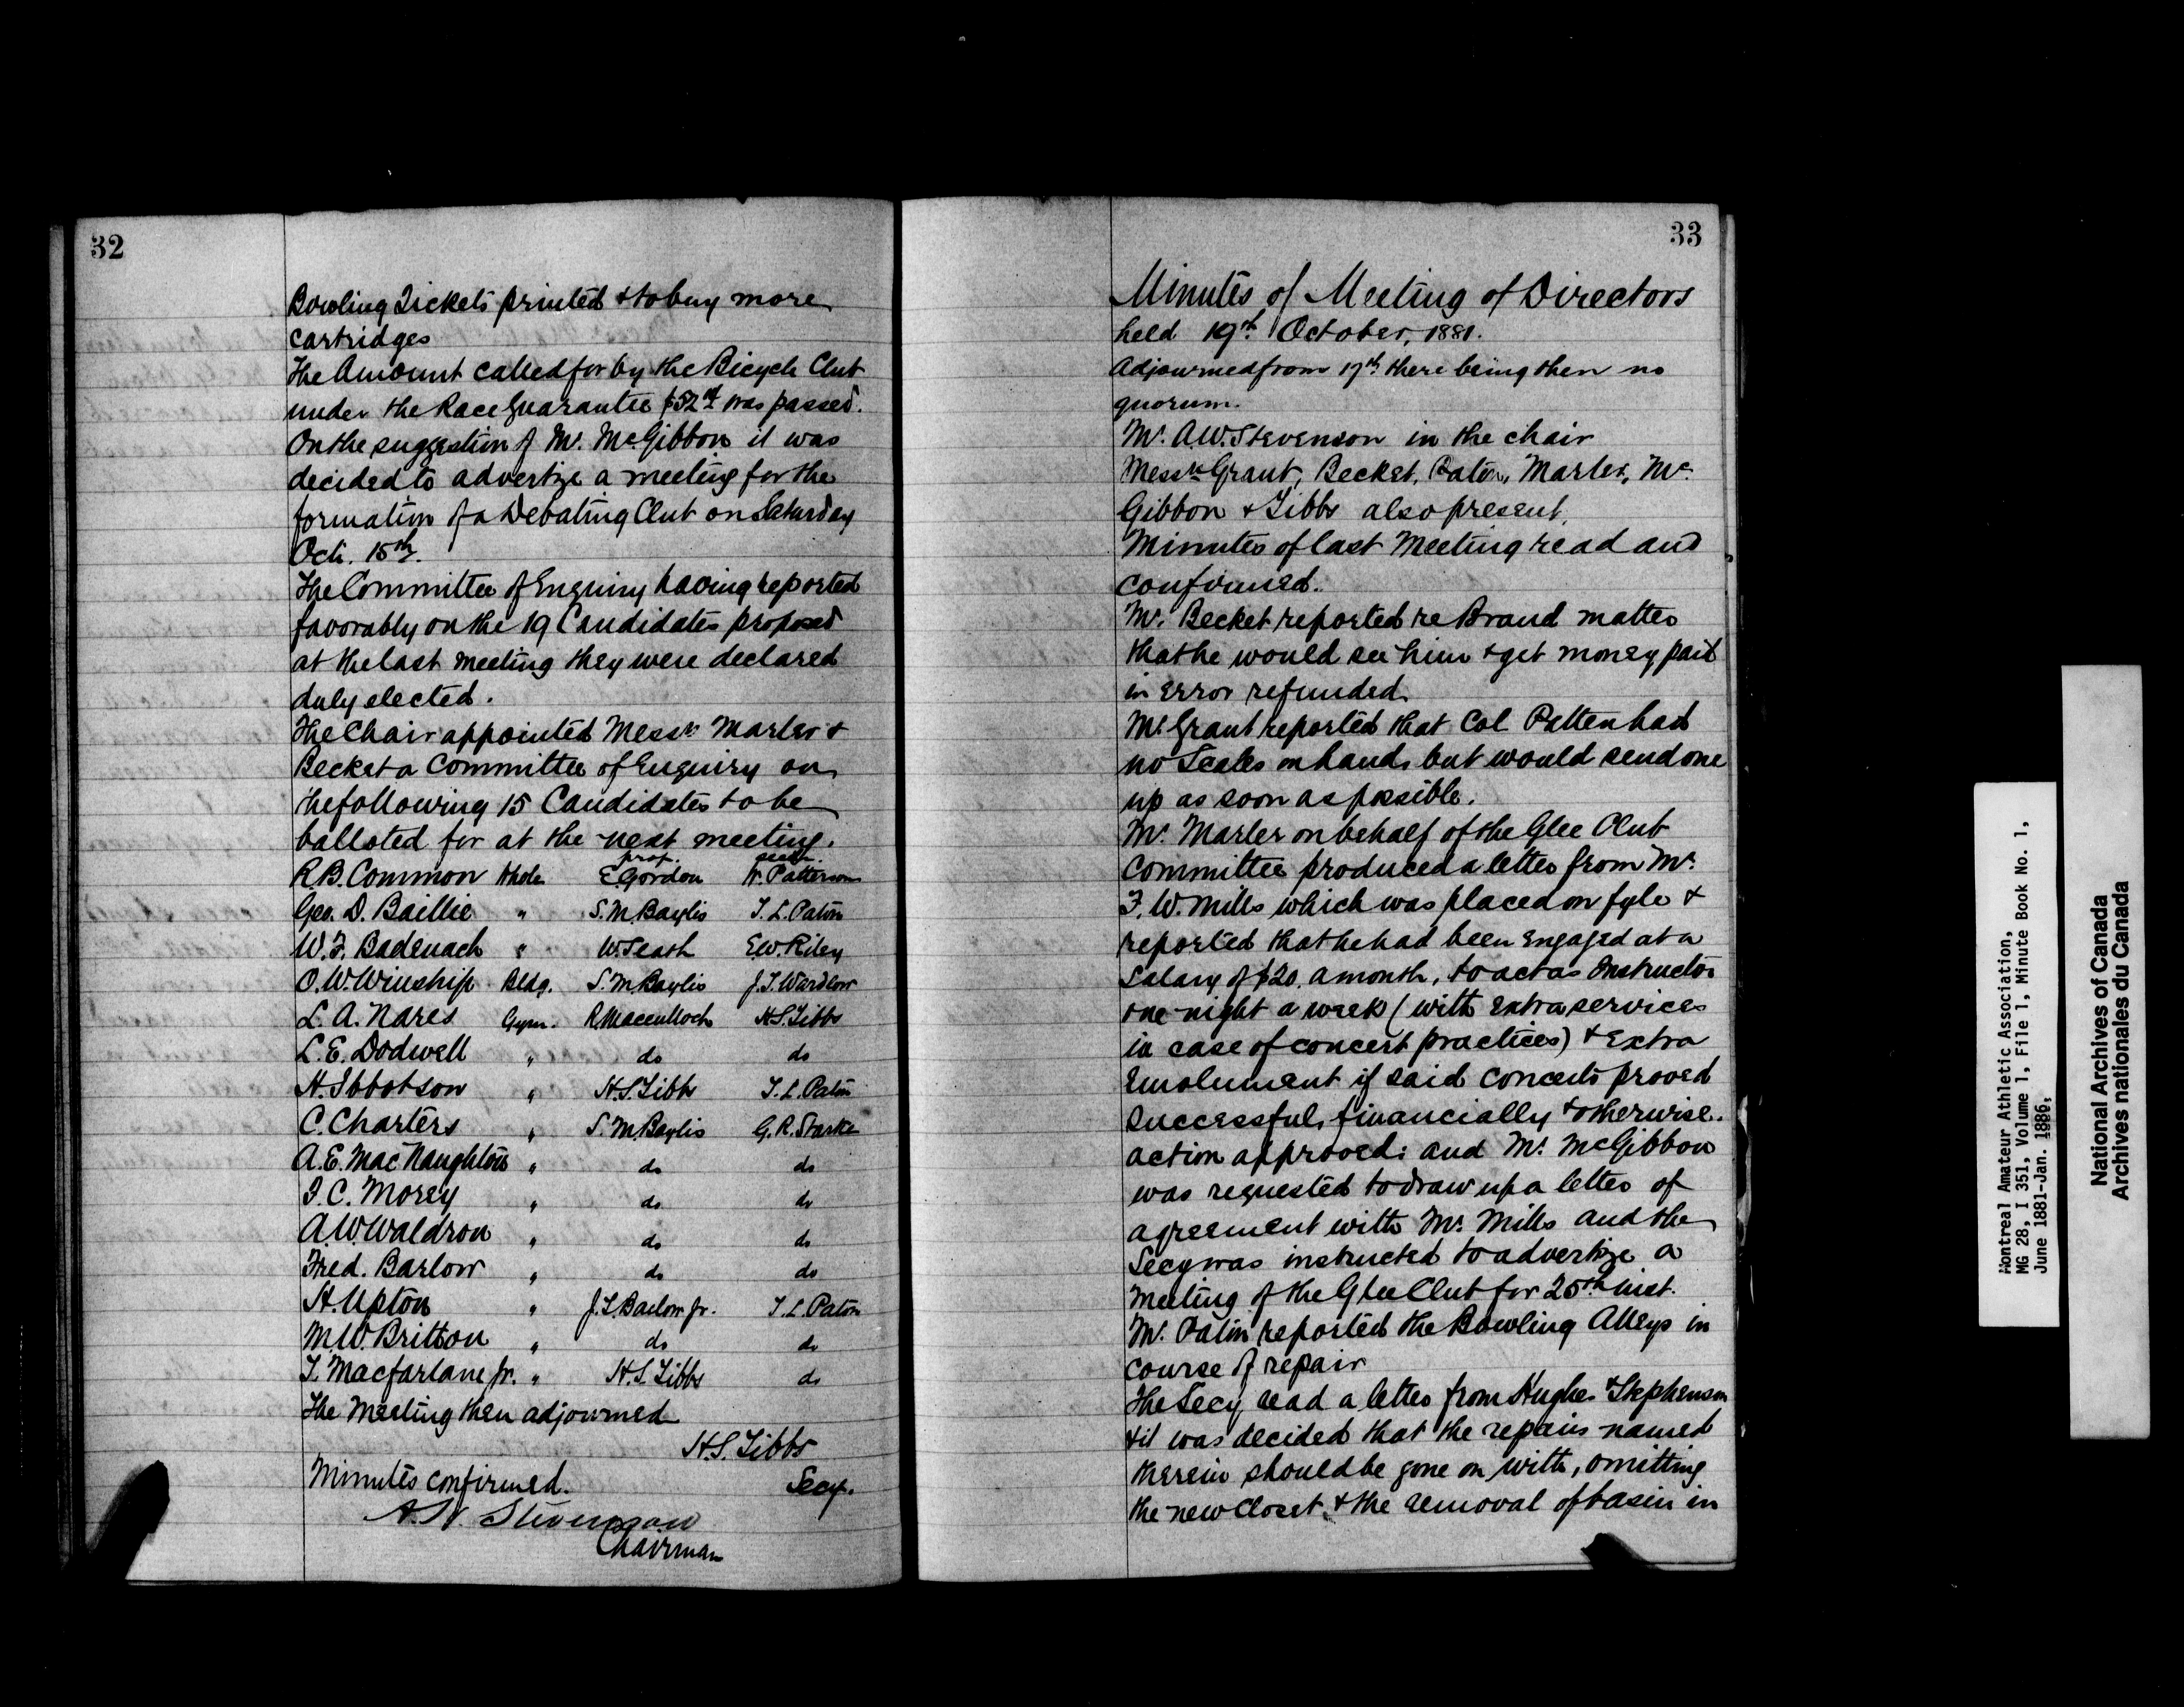 32
Bowling Tickets printed & to buy more
cartridges
The Amount called for by the Bicycle Club
under the Race Guarantee was passed.
On the suggestion of Mr. McGibbon it was
decided to advertize a meeting for the
formation of a Debating Club on Saturday
Oct. 15th.
The Committee of Enquiry having reported
favorably on the 19 Candidates proposed
at the last meeting they were declared
duly elected.
The Chair appointed Messrs Marler &
Becket a Committee of Enquiry on
the following 15 Candidates to be
balloted for at the next meeting.
prop. secdr.
R.B. Common Whole E. Gordon W. Patterson
Geo. D. Baillie " S.M. Baylis T.L. Paton
W.F. Badenach " W. Seath E.W. Riley
O.W. Winship Bldg. S.M. Baylis J.T. Wardlow
L.A. Nares Gym. R. Macculloch H.S. Tibbs
L.E. Dodwell " do do
H. Ibbotson " H.S. Tibbs T.L. Paton
C. Charters " S.M. Baylis G.R. Starke
A.E. MacNaughton " do do
I.C. Morey " do do
A.W. Waldron " do do
Fred. Barlow " do do
H. Upton " J.L. Barlow Jr. T.L. Paton
M.W. Britton " do do
T. Macfarlane Jr. " H.S. Tibbs do
The Meeting then adjourned
H.S. Tibbs
Minutes confirmed. Secy.
A.W. Stevenson
Chairman
33
Minutes of Meeting of Directors
held 19th October, 1881.
Adjourned from 17th there being then no
quorum.
Mr. A.W. Stevenson in the chair
Messrs Grant, Becket, Paton, Marler, Mc
Gibbon & Tibbs also present.
Minutes of last Meeting read and
confirmed.
Mr. Becket reported re Brand matter
that he would see him & get money paid
in error refunded.
Mr Grant reported that Col Patten had
no Scales on hand, but would send one
up as soon as possible.
Mr. Marler on behalf of the Glee Club
Committee produced a letter from Mr.
F.W. Mills which was placed on fyle &
reported that he had been engaged at a
salary of $20. a month, to act as Instructor
one night a week (with extra services
in case of concert practices) & Extra
Emolument if said concerts proved
successful, financially & otherwise.
action approved: and Mr. McGibbon
was requested to draw up a letter of
agreement with Mr. Mills and the
Secy was instructed to advertize a
meeting of the Glee Club for 25th inst.
Mr. Paton reported the Bowling Alleys in
course of repair
The Secy read a letter from Hughes & Stephenson
& it was decided that the repairs named
therein should be gone on with, omitting
the new closet & the removal of basin in
Montreal Amateur Athletic Association,
MG 28, I 351, Volume 1, File 1, Minute Book No. 1,
June 1881-Jan. 1886,
National Archives of Canada
Archives nationales du Canada